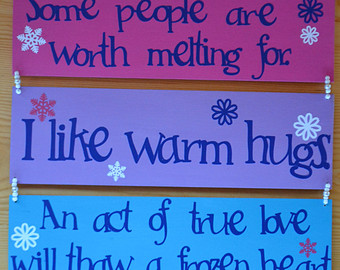 Some people are
worth melting for.
I like warm hugs.
An act of true love
will thaw a frozen heart